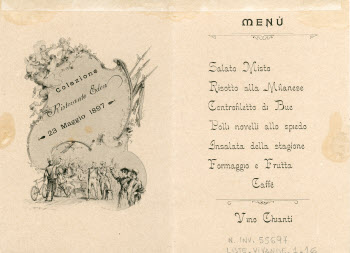 Colazione
Ristorante Eden
23 Maggio 1897
MENÙ
Salato Misto
Risotto alla Milanese
Controfiletto di Bue
Polli novelli allo spiedo
Insalata della stagione
Formaggio e Frutta
Caffè
Vino Chianti
N. INV. 55697